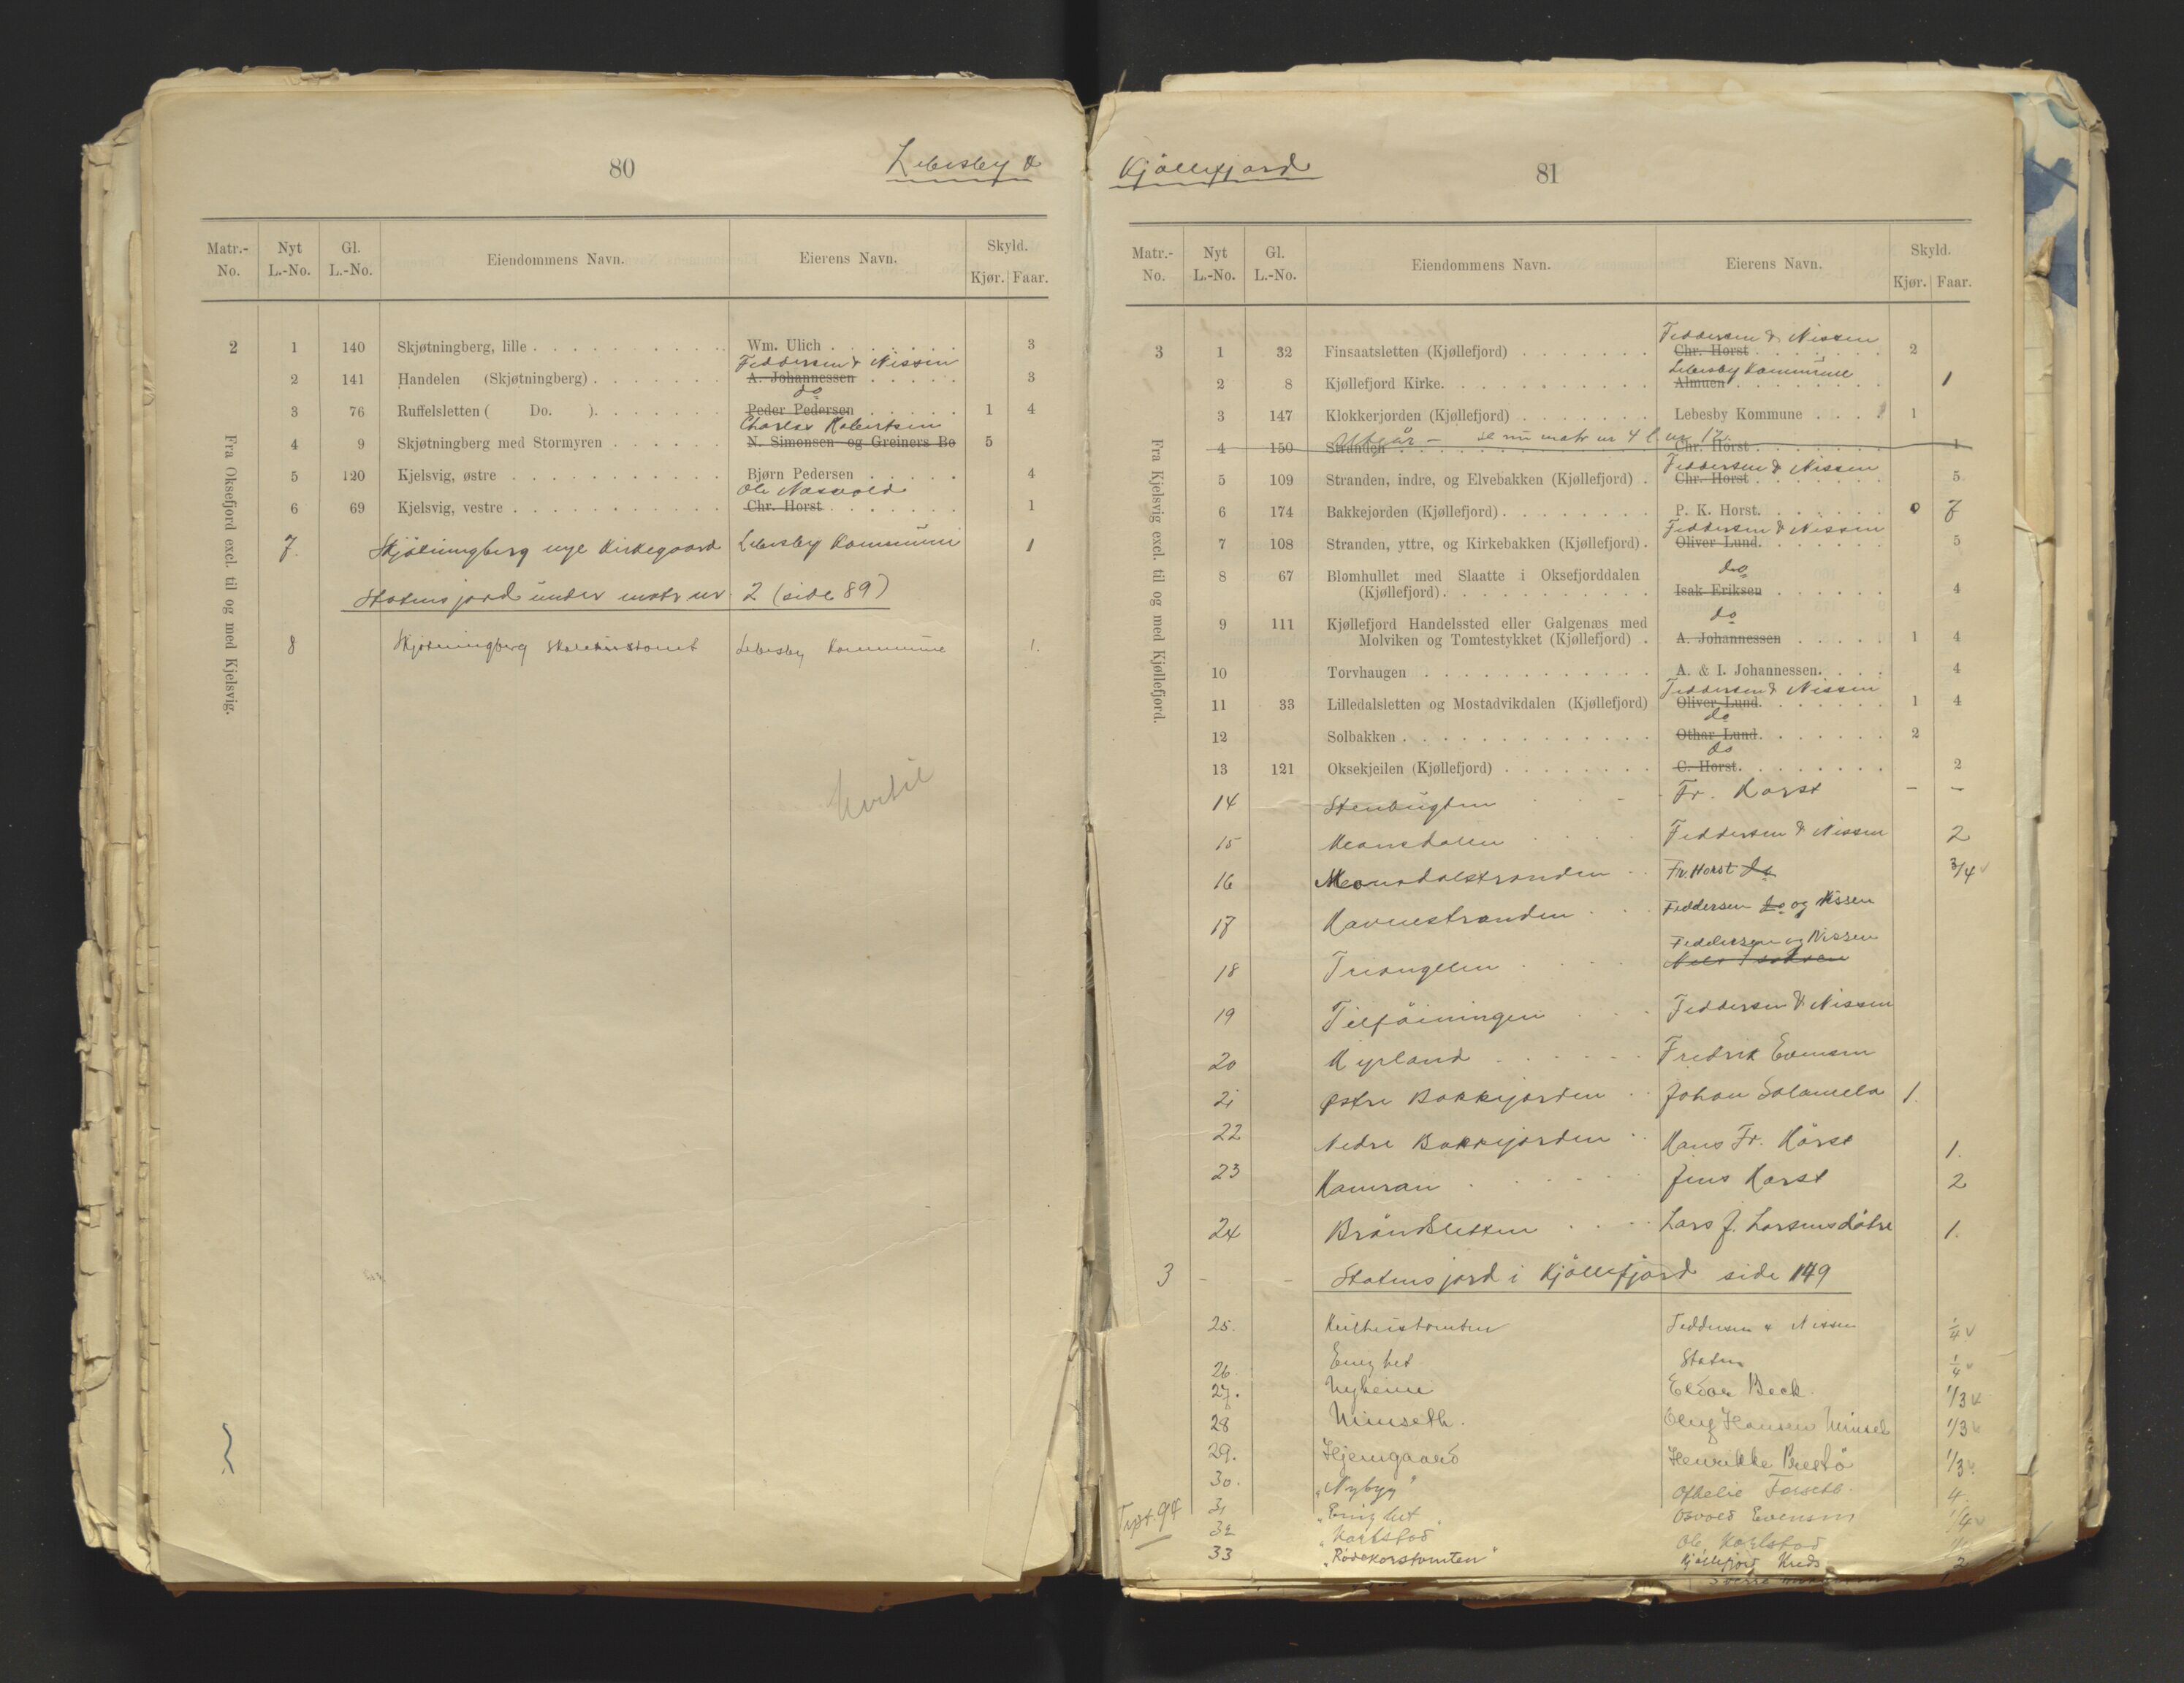 80
Lebesby &
Matr.-No. Nyt L.-No. Gl. L.-No. Eiendommens Navn. Eierens Navn. Skyld. Kjør. Faar.
Fra Oksefjord excl. til og med Kjelsvig.
2 1 140 Skjøtningberg, lille Wm. Ulich 3
Feddersen & Nissen
2 141 Handelen (Skjøtningberg) A. Johannessen 3
do
3 76 Ruffelsletten ( Do. ) Peder Pedersen 1 4
Charles Robertsen
4 9 Skjøtningberg med Stormyren N. Simonsen og Greiners Bo 5
5 120 Kjelsvig, østre Bjørn Pedersen 4
Ole Næsvold
6 69 Kjelsvig, vestre Chr. Horst 1
7. Skjötningberg nye Kirkegaard Lebesby Kommune 1
Statens jord under matr nr. 2 (side 89)
8 Skjötningberg Lebesby Kommune 1.
Kjöllefjord
81
Matr.-No. Nyt L.-No. Gl. L.-No. Eiendommens Navn. Eierens Navn. Skyld. Kjør. Faar.
Fra Kjelsvig excl. til og med Kjøllefjord.
Feddersen & Nissen
3 1 32 Finsaatsletten (Kjøllefjord) Chr. Horst 2
Lebesby Kommune
2 8 Kjøllefjord Kirke Almuen 1
3 147 Klokkerjorden (Kjøllefjord) Lebesby Kommune 1
Utgår – se nu matr nr 4 l. nr 12.
4 150 Stranden Chr. Horst 1
Feddersen & Nissen
5 109 Stranden, indre, og Elvebakken (Kjøllefjord) Chr. Horst 5
6 174 Bakkejorden (Kjøllefjord) P. K. Horst. 0 7
Feddersen & Nissen
7 108 Stranden, yttre, og Kirkebakken (Kjøllefjord) Oliver Lund. 5
8 67 Blomhullet med Slaatte i Oksefjorddalen do
(Kjøllefjord) Isak Eriksen 4
9 111 Kjøllefjord Handelssted eller Galgenæs med do
Molviken og Tomtestykket (Kjøllefjord) A. Johannessen 1 4
10 Torvhaugen A. & I. Johannessen. 4
Feddersen & Nissen
11 33 Lilledalsletten og Mostadvikdalen (Kjøllefjord) Oliver Lund. 1 4
do
12 Solbakken Othar Lund. 2
do
13 121 Oksekjeilen (Kjøllefjord) C. Horst. 2
14 Stenbugten Fr. Horst – –
15 Meansdalen Feddersen & Nissen 2
16 Fr. Horst do 3/4
17 Havnestranden Feddersen do og Nissen
Feddersen og Nissen
18 Triangelen
19 Tilföiningen Feddersen & Nissen
20 Nyland Fredrik Evensen
21 Østre Bakkejorden Johan Salamela 1.
22 Nedre Bakkejorden Hans Fr. Horst 1.
23 Hamran Jens Horst 2
24 Bråndsletten Lars J. Larsensdötre 1.
3 – – Statens jord i Kjöllefjord side 149
25. Feddersen & Nissen 1/4
26. Enighet Staten 1/4
27. Nyheim Eldor Beck 1/3
28 Nimseth. Oluf Hansen 1/3
29. Hjemgaard Henrikke Prestö 1/3
30. "Nybyg" Ofhelie Forseth. 4
31 "Enighet Osvold Evensen 1/4
32 "Karlstad Ole Karlstad
33 "Rödekorstomten" Kjöllefjord Kreds 2